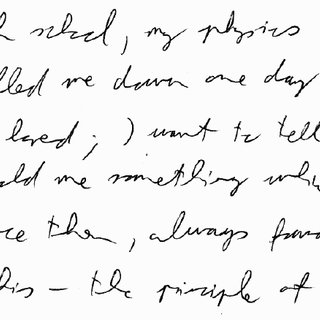 h school, my physics
lled me down one day
bored; I want to tell
told me something whic
nce then, always foun
his – the principle of